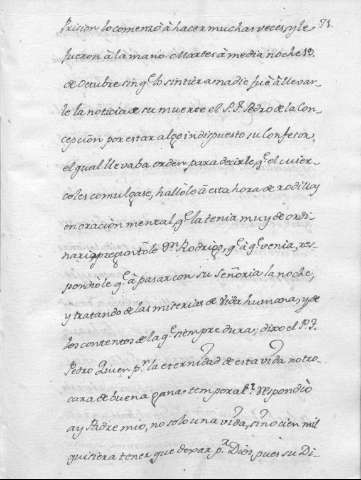 71.
Prision lo comenzò à hacer muchas veces, y le
fueron à la mano. Martes à media noche 19.
de Octubre sin q.e lo sintiera nadie fuè à llevar
le la noticia de su muerte el P. F. Pedro de la Con
cepciòn por estar algo indispuesto su Confesor,
el qual llevaba orden para decirle, q.e el mier
coles comulgase, hallòlo à esta hora de rodillas
en oraciòn mental, q.e la tenia muy de ordi
nario, preguntòle Dn. Rodrigo, q.e à q.e venia, res
pondiòle q.e à pasar con su Señoria la noche,
y tratando de las miserias de vida humana, y de
los contentos de la q.e siempre dura; dixo el P. F.
Pedro Quien p.r la eternidad de esta vida no tro
cara de buena gana temporal? Respondiò
ay Padre mio, no solo una vida, sino cien mil
quisiera tener que dexar p.r Dios, pues su Di-